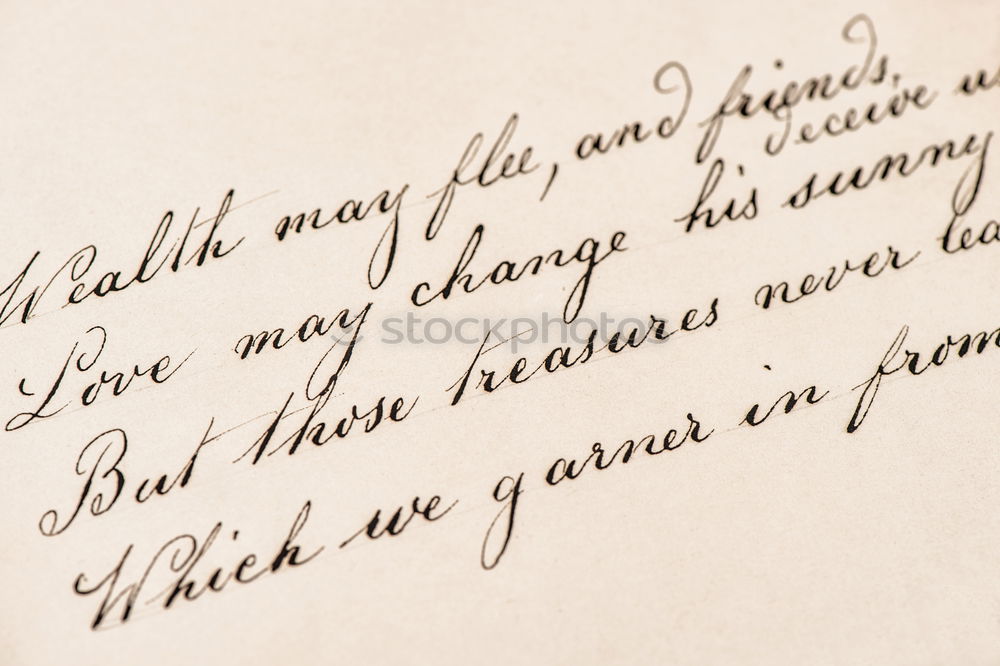 Wealth may flee, and friends.
deceive u
Love may change his sunny
But those treasures never lea
Which we garner in from
stockphotos